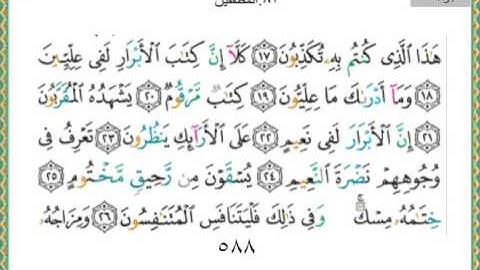 ٨٣.المطففين
هَٰذَا الَّذِي كُنتُم بِهِۦ تُكَذِّبُونَ ١٧ كَلَّآ إِنَّ كِتَٰبَ الْأَبْرَارِ لَفِي عِلِّيِّينَ
١٨ وَمَآ أَدْرَىٰكَ مَا عِلِّيُّونَ ١٩ كِتَٰبٌ مَّرْقُومٌ ٢٠ يَشْهَدُهُ الْمُقَرَّبُونَ
٢١ إِنَّ الْأَبْرَارَ لَفِي نَعِيمٍ ٢٢ عَلَى الْأَرَآئِكِ يَنظُرُونَ ٢٣ تَعْرِفُ فِي
وُجُوهِهِمْ نَضْرَةَ النَّعِيمِ ٢٤ يُسْقَوْنَ مِن رَّحِيقٍ مَّخْتُومٍ ٢٥
خِتَٰمُهُۥ مِسْكٌ ۚ وَفِي ذَٰلِكَ فَلْيَتَنَافَسِ الْمُتَنَٰفِسُونَ ٢٦ وَمِزَاجُهُۥ
٥٨٨